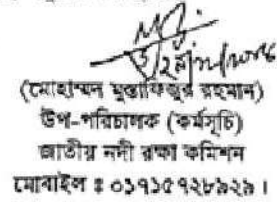 (মোহাম্মদ মুস্তাফিজুর রহমান)
উপ-পরিচালক (কর্মসূচি)
জাতীয় নদী রক্ষা কমিশন
মোবাইল ঃ ০১৭১৫৭২৮৯২৯।